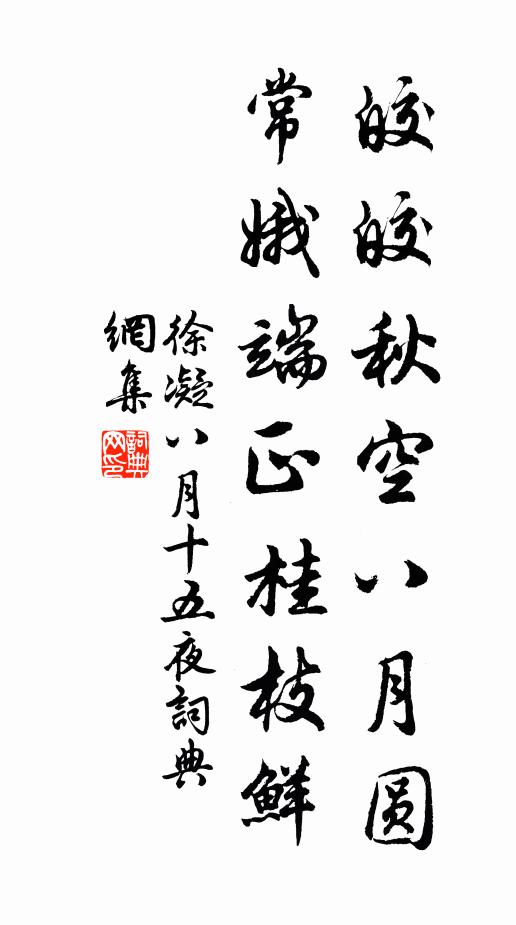 皎皎秋空八月圆
常娥端正桂枝鮮
徐凝八月十五夜詞典
網集
詞典網印